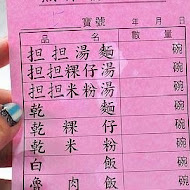 寶號 年 月 日
品名 數量
担担湯麵 碗
担担粿仔湯 碗
担担米粉湯 碗
乾麵 碗
乾粿仔 碗
乾米粉 碗
白飯 碗
魯肉飯 碗